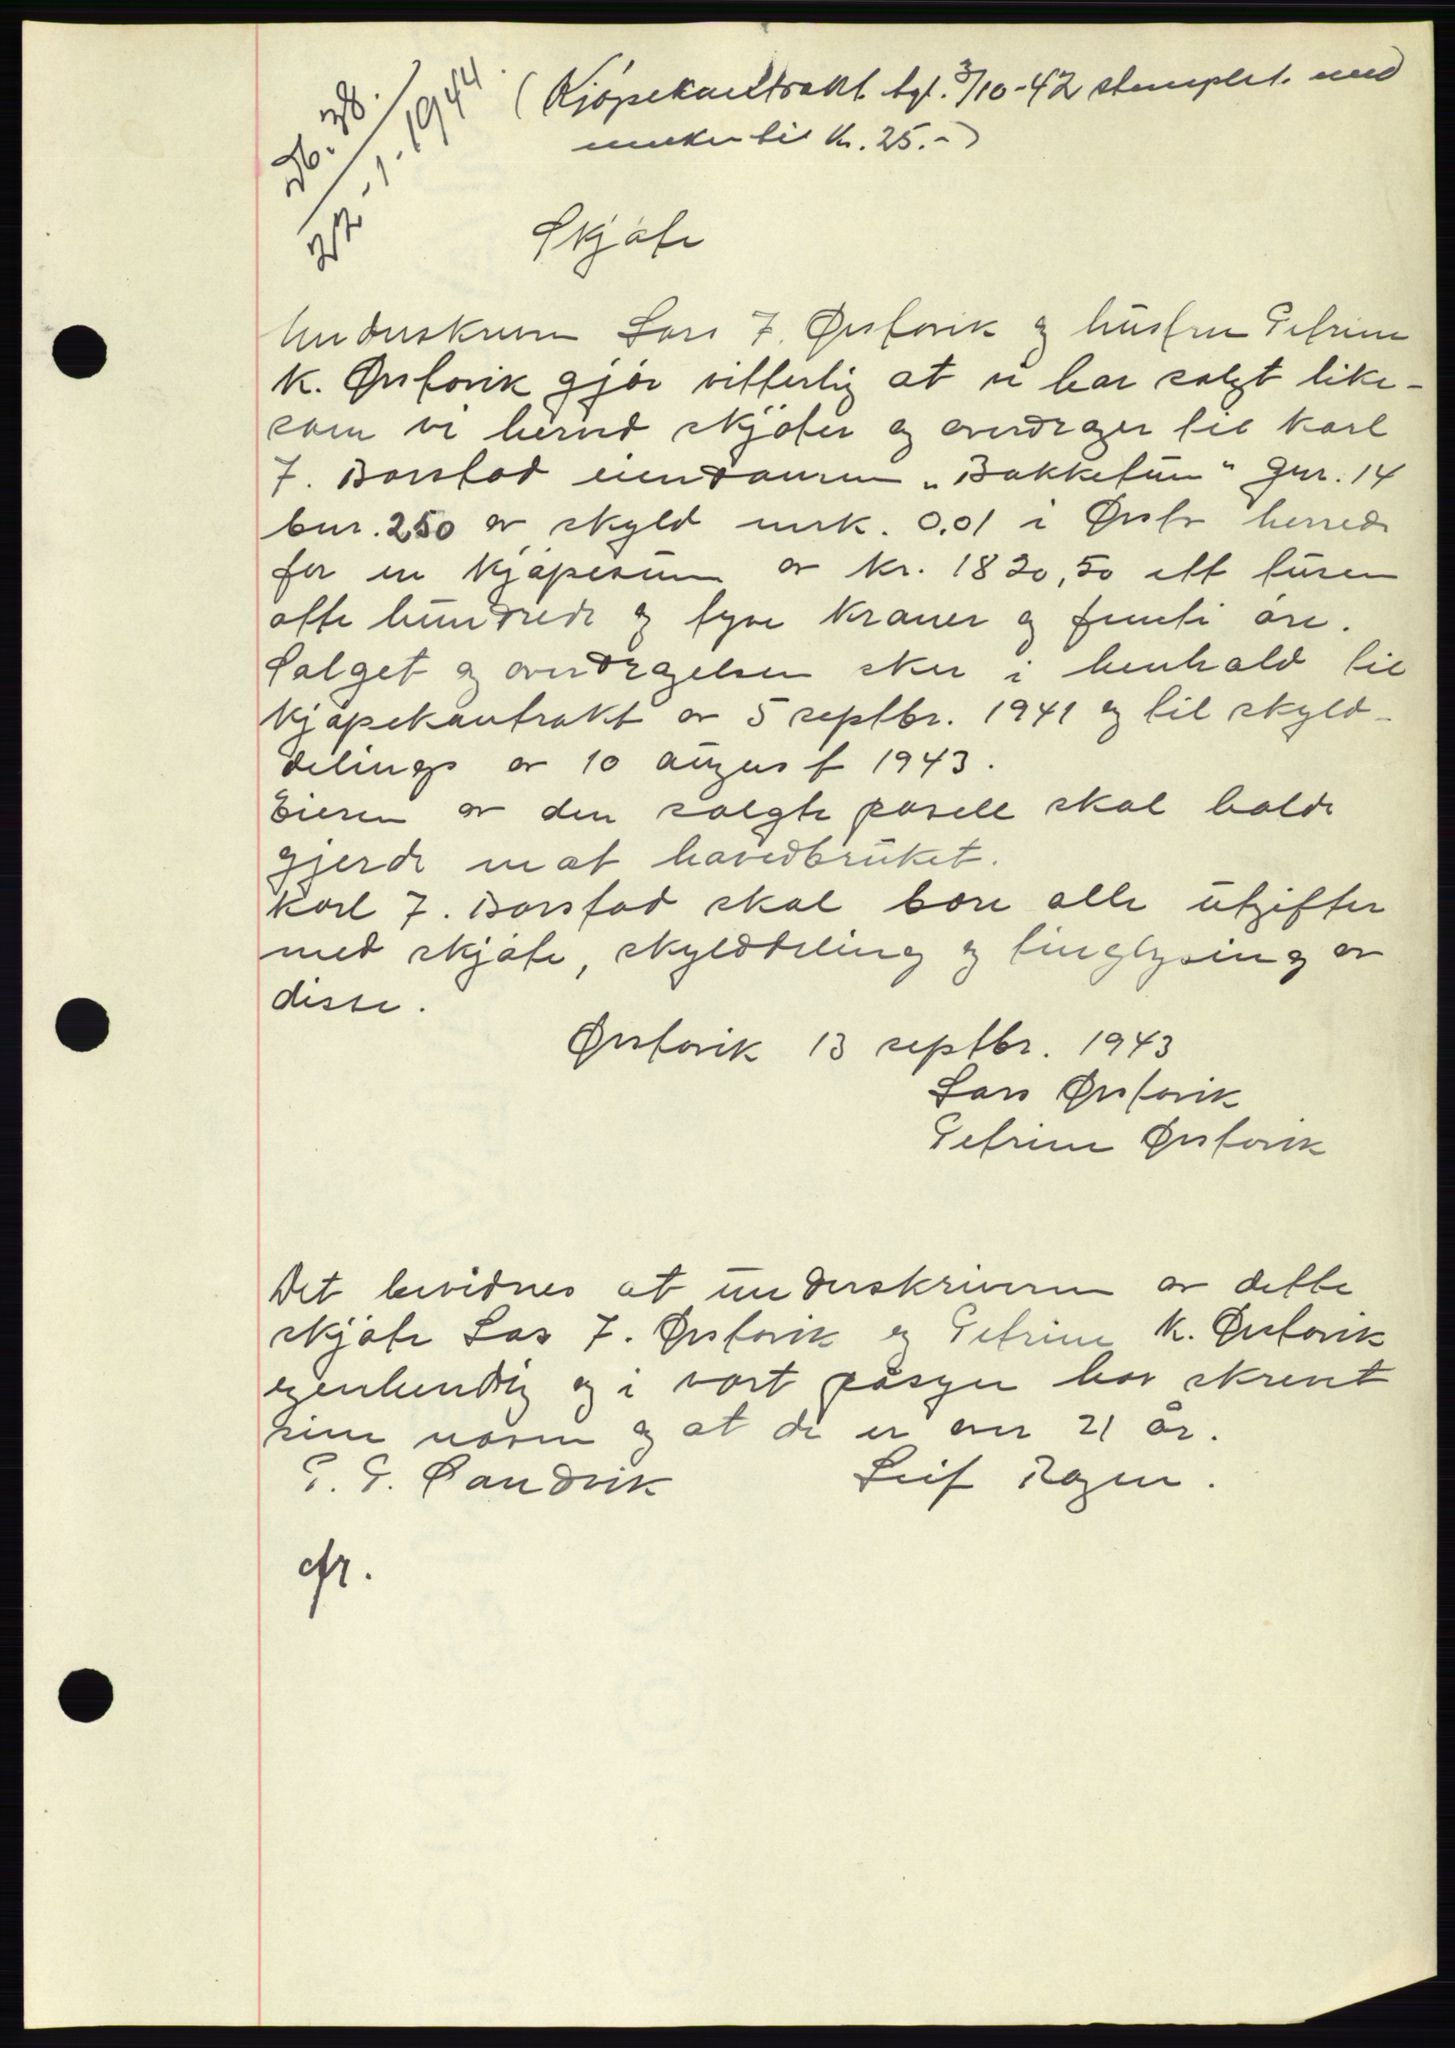 Db. 38.
22-1-1944.
(Kjöpekontrakt tgl. 3/10-42 stemplet. med
merker til kr. 25.-)
Skjöte
Underskrevne Lars J. Ørstavik og hustru Petrine
K. Ørstavik gjör vitterlig at vi har solgt like-
som vi herved skjöter og overdrager til Karl
J. Barstad eiendommen "Bakketun" gnr. 14
bnr. 250 av skyld mrk. 0,01 i Ørsta herred
for en kjöpesum av kr. 1820,50 ett tusen
otte hundrede og tyve kroner og femti öre.
Salget og overdragelsen sker i henhold til
kjöpekontrakt av 5 septbr. 1941 og til skyld-
delings av 10 august 1943.
Eieren av den solgte parsell skal holde
gjerde mot hovedbruket.
Karl J. Barstad skal bære alle utgifter
med skjöte, skylddeling og tinglysing av
disse.
Ørstavik 13 septbr. 1943
Lars Ørstavik
Petrine Ørstavik
Det bevidnes at underskriverne av dette
skjöte Las J. Ørstavik og Petrine K. Ørstavik
egenhendig og i vort påsyn har skrevet
sine navne og at de er over 21 år.
P. P. Sandvik Leif Ragen.